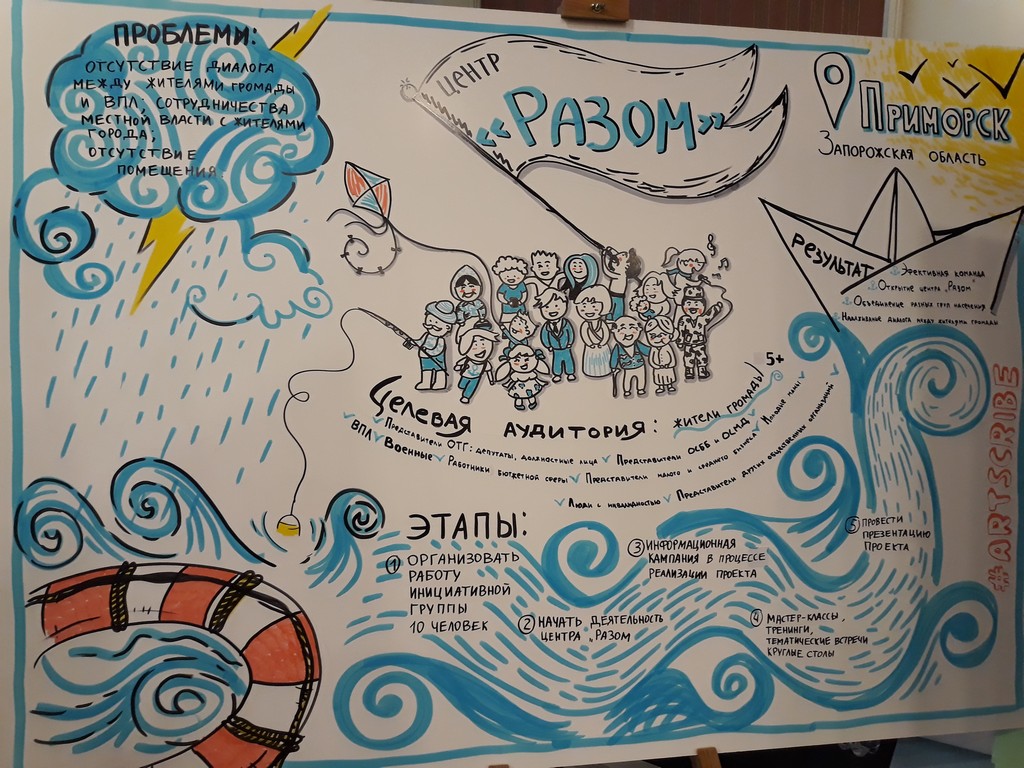 ПРОБЛЕМИ:
ОТСУТСТВИЕ ДИАЛОГА
МЕЖДУ ЖИТЕЛЯМИ ГРОМАДЫ
И ВПЛ; СОТРУДНИЧЕСТВА
МЕСТНОЙ ВЛАСТИ С ЖИТЕЛЯМИ
ГОРОДА;
ОТСУТСТВИЕ
ПОМЕЩЕНИЯ.
ЦЕНТР
«РАЗОМ»
ПРИМОРСК
ЗАПОРОЖСКАЯ ОБЛАСТЬ
РЕЗУЛЬТАТ
Эфективная команда
Открытие центра „Разом"
Объединение разных груп населения
Налаживание диалога между жителями громады
5+
ЦЕЛЕВАЯ АУДИТОРИЯ: ЖИТЕЛИ ГРОМАДЫ
Представители ОТГ: депутаты, должностные лица Представители ОСББ и ОСМД Молодые мамы
ВПЛ Военные Работники бюджетной сферы Представители малого и среднего бизнеса
Люди с инвалидностью Представители других общественных организаций
ЭТАПЫ:
1 ОРГАНИЗОВАТЬ
РАБОТУ
ИНИЦИАТИВНОЙ
ГРУППЫ
10 ЧЕЛОВЕК
2 НАЧАТЬ ДЕЯТЕЛЬНОСТЬ
ЦЕНТРА „РАЗОМ
3 ИНФОРМАЦИОННАЯ
КАМПАНИЯ В ПРОЦЕССЕ
РЕАЛИЗАЦИИ ПРОЕКТА
4 МАСТЕР-КЛАССЫ,
ТРЕНИНГИ,
ТЕМАТИЧЕСКИЕ ВСТРЕЧИ
КРУГЛЫЕ СТОЛЫ
5 ПРОВЕСТИ
ПРЕЗЕНТАЦИЮ
ПРОЕКТА
#ARTSCRIBE